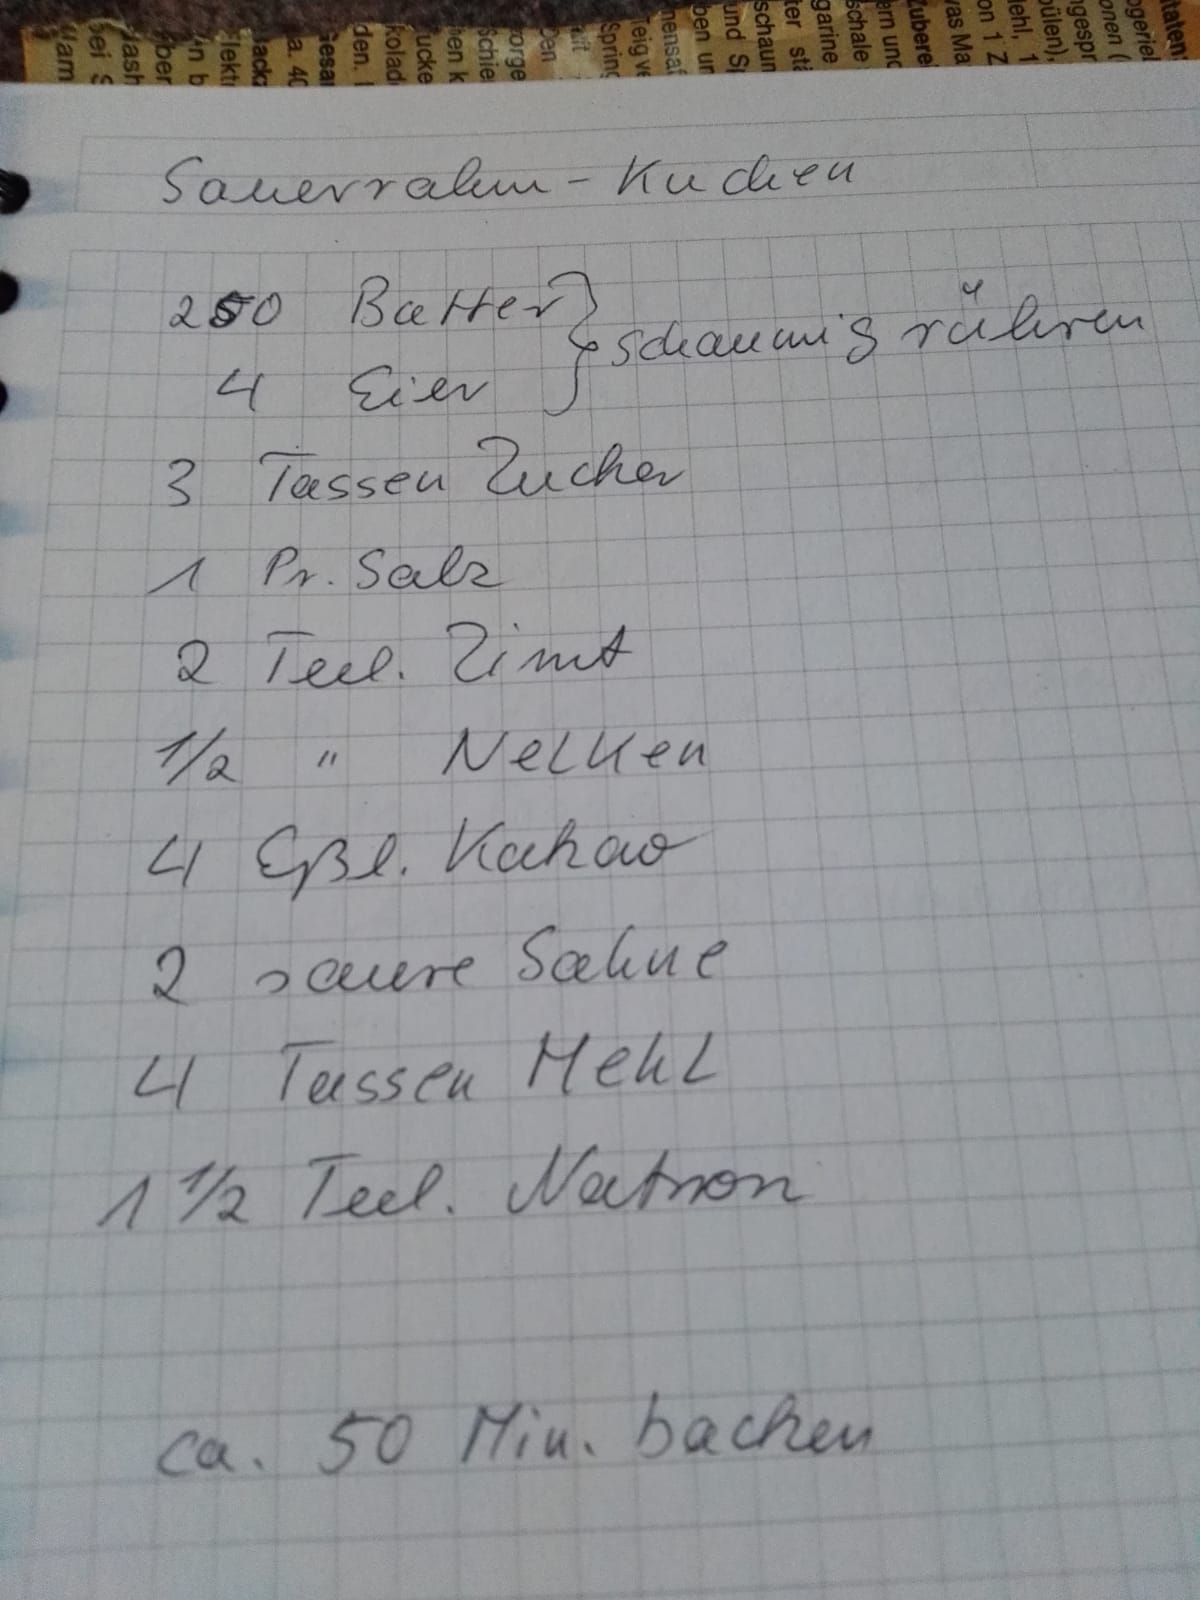 Sauerrahm-Kuchen
250 Butter } schaumig rühren
4 Eier
3 Tassen Zucker
1 Pr. Salz
2 Teel. Zimt
1/2 " Nelken
4 Eßl. Kakao
2 saure Sahne
4 Tassen Mehl
1 1/2 Teel. Natron
ca. 50 Min. backen